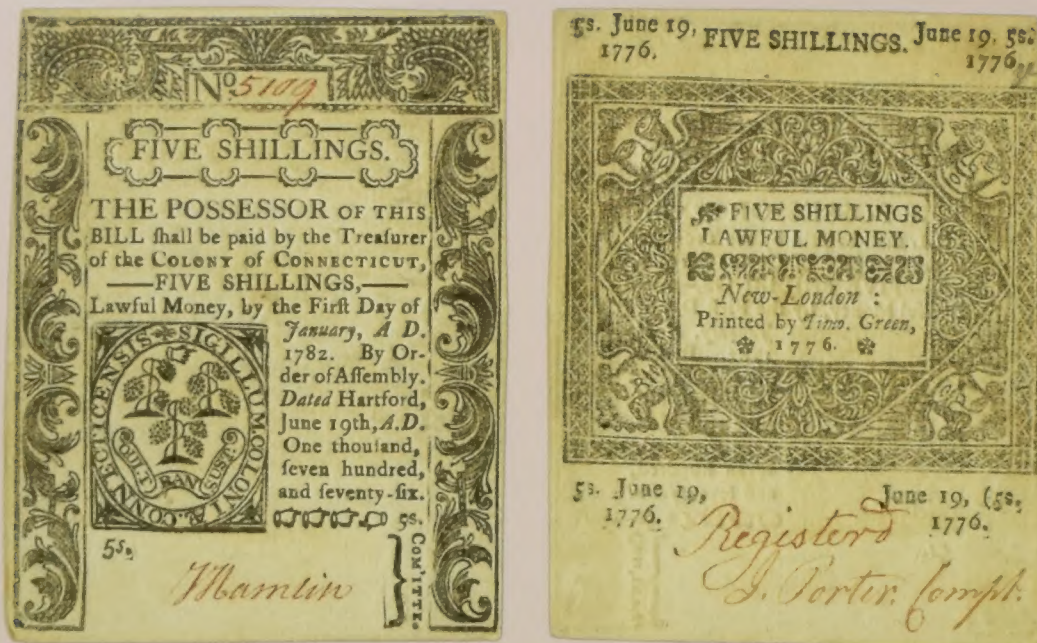 No. 5109
FIVE SHILLINGS.
THE POSSESSOR OF THIS
BILL ſhall be paid by the Treaſurer
of the COLONY of CONNECTICUT,
—FIVE SHILLINGS,—
Lawful Money, by the Firſt Day of
January, A D.
1782. By Or-
der of Aſſembly.
Dated Hartford,
June 19th, A.D.
One thouſand,
ſeven hundred,
and ſeventy-ſix.
5s.
SIGILLUM.COLONIÆ.CONNECTICENSIS
QUI.T
RAN
SUST.
5s.
Hamlin
COM'TTE.
5s. June 19,
1776.
FIVE SHILLINGS.
June 19, 5s.
1776.
FIVE SHILLINGS
LAWFUL MONEY.
New-London :
Printed by Timo. Green,
1776.
5s. June 19,
1776.
June 19, (5s.
1776.
Registerd
J. Porter. Compt.